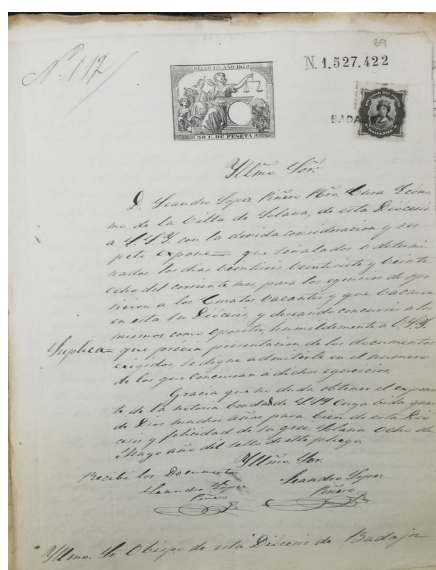 39
N. 112
SELLO 11º AÑO 1872
N. 1.527.422
50 C. DE PESETA
BADAJ
Yllmo Sor.
D. Leandro Lopez Piñero Pbro Cura Ecóno-
mo de la Villa de Solana, de esta Diócesis
a V.S.Y. con la devida consideracion y res-
peto expone= que señalados o determi-
nados los dias veintiseis veintisiete y veinte
ocho del corriente mes para los egercicios de opo-
sicion a los Curatos vacantes y que vacaren
en esta su Diócesis, y deseando concurrir a los
mismos como opositor, humildemente a V.S.Y.
Suplica= que prévia presentacion de los documentos
exigidos, se digne admitirle en el número
de los que concurran a dichos egercicios.
Gracia que no duda obtener el exponen-
te de la notoria bondad de V.S.Y. cuya vida guar-
de Dios muchos años para bien de esta Dio-
cesis y felicidad de la grey. Solana Ocho de
Mayo año del sello de este pliego.
Yllmo Sor.
Recibí los Documentos
Leandro Lopez
Piñero
Leandro Lopez
Piñero
Yllmo. Sr. Obispo de esta Diócesis de Badajoz